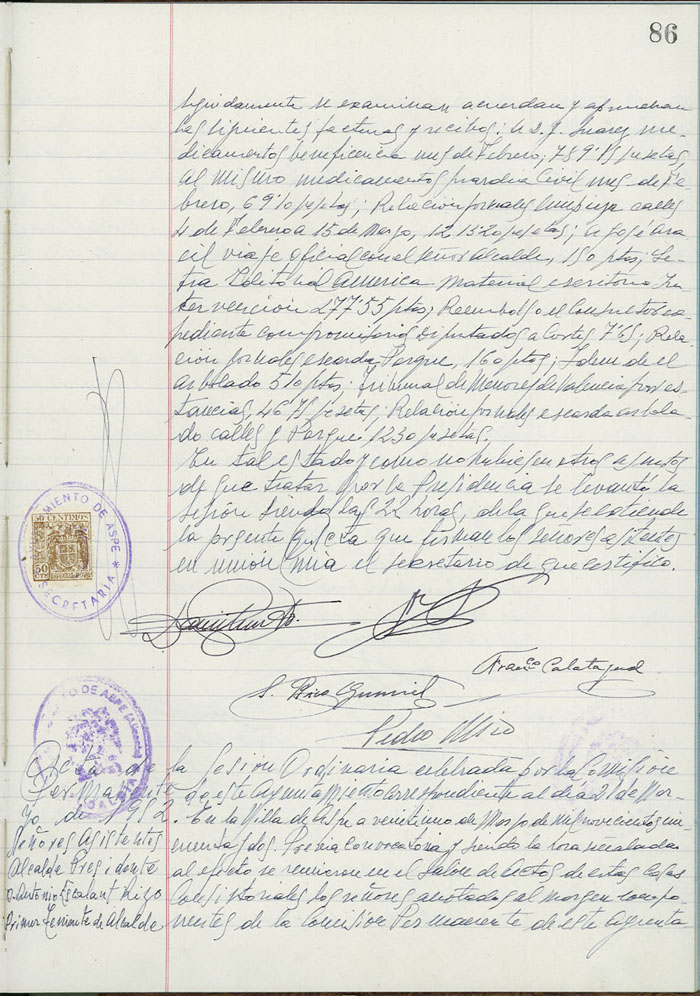 86
Seguidamente se examinan acuerdan y aprueban
las siguientes facturas y recibos: A D. J. Suarez me-
dicamentos beneficencia mes de Febrero, 759'15 pesetas,
al mismo medicamentos guardia Civil mes de Fe-
brero, 69'10 pesetas; Relacion jornales limpieza calles
4 de Febrero a 15 de Marzo, 1.215'20 pesetas; a Jose
viaje oficial con el señor Alcalde, 150 ptas; Le-
tra Editorial America material escritorio In-
tervencion 277'55 ptas; Reembolso
pediente compromisarios Diputados a Cortes 7'65; Rela-
cion jornales escarda Parque, 160 ptas; Idem de el
arbolado 510 ptas; Tribunal de Menores de Valencia por es-
tancias, 46'75 pesetas; Relacion jornales escarda arbola-
do calles y Parque 1230 pesetas.
En tal estado y como no hubiesen otros asuntos
de que tratar por la Presidencia se levantó la
sesión siendo las 22 horas, de la que se extiende
la presente acta que firman los señores asistentes
en union mia el secretario de que certifico.
MIENTO DE ASPE * SECRETARIA *
50 CENTIMOS
50
Franco Calatayud
Pedro Miro
Acta de la Sesion Ordinaria celebrada por la Comision
Permanente de este Ayuntamiento correspondiente al dia 21 de Mar-
zo de 1952. En la Villa de Aspe a veintiuno de Marzo de mil novecientos cin-
cuenta y dos. Previa convocatoria y siendo la hora señalada
al efecto se reunieron en el Salon de Actos de estas Casas
Consistoriales los señores anotados al margen compo-
nentes de la Comision Permanente de este Ayunta-
Señores Asistentes
Alcalde Presidente
D. Antonio Escalant Rizo
Primer Teniente de Alcalde